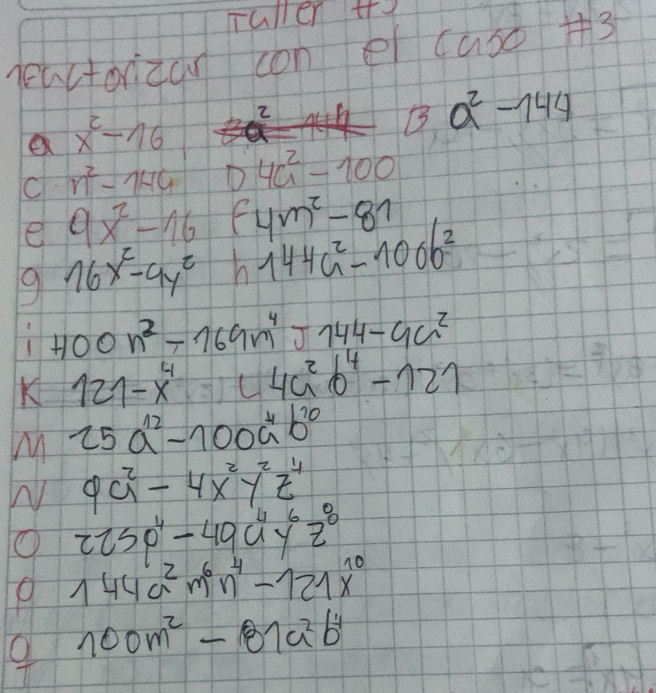 Taller #3
Factorizar con el caso #3
a x² - 16 B, a² - 144
C n² - 144 D 4a² - 100
e 9x² - 16 F 4m² - 81
g 16x² - 9y² h 144a² - 100b²
i 400n² - 169m⁴ J 144 - 9a²
K 121 - x⁴ L 4a²b⁴ - 121
M 25a¹² - 100a⁴b¹⁰
N 9a² - 4x²y²z⁴
O 225p⁴ - 49a⁴y⁶z⁸
P 144a²m⁶n⁴ - 121x¹⁰
q 100m² - 81a²b⁴